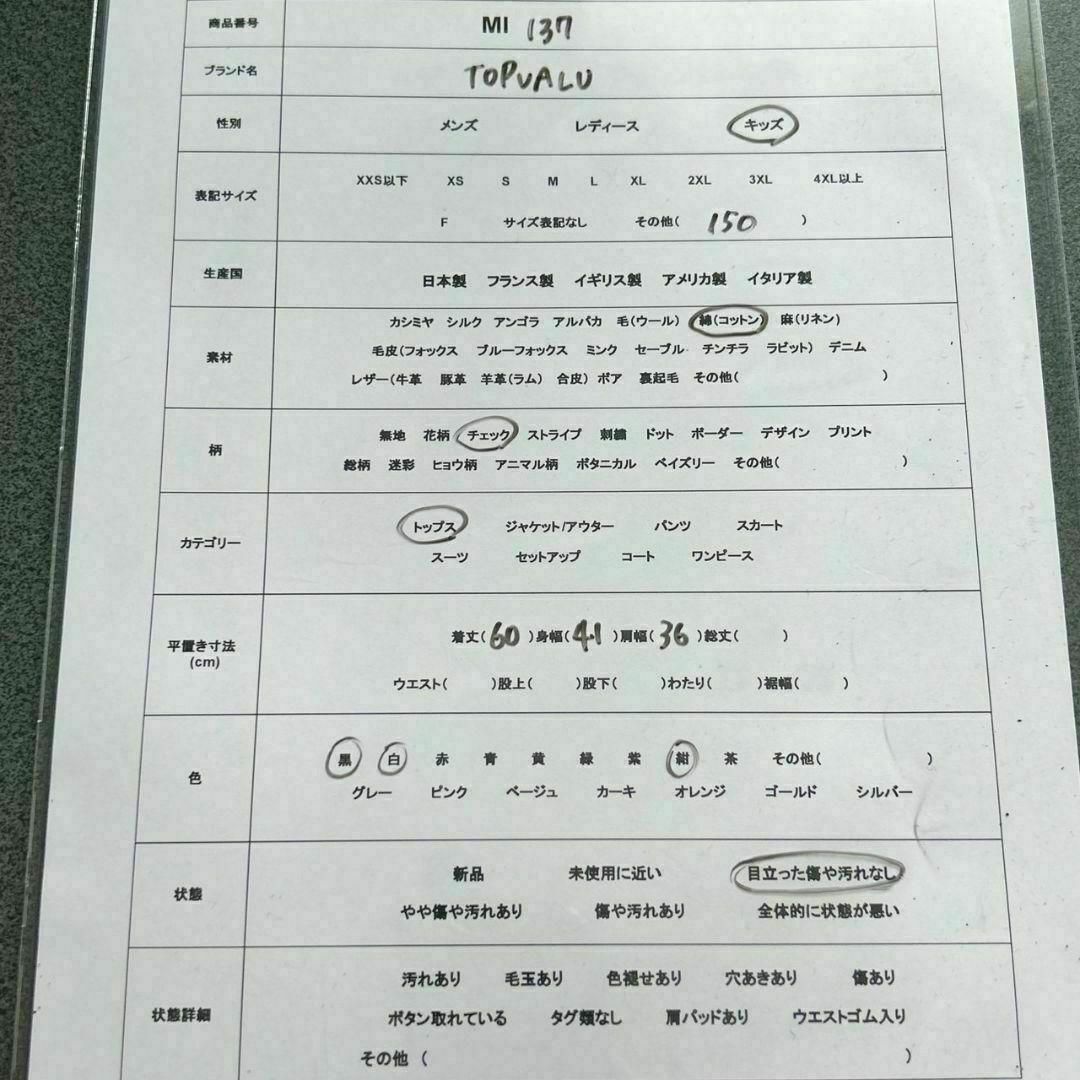 商品番号 MI 137
ブランド名 TOPVALU
性別 メンズ レディース キッズ
表記サイズ XXS以下 XS S M L XL 2XL 3XL 4XL以上
F サイズ表記なし その他( 150 )
生産国 日本製 フランス製 イギリス製 アメリカ製 イタリア製
素材 カシミヤ シルク アンゴラ アルパカ 毛(ウール) 綿(コットン) 麻(リネン)
毛皮(フォックス ブルーフォックス ミンク セーブル チンチラ ラビット) デニム
レザー(牛革 豚革 羊革(ラム) 合皮) ボア 裏起毛 その他( )
柄 無地 花柄 チェック ストライプ 刺繍 ドット ボーダー デザイン プリント
総柄 迷彩 ヒョウ柄 アニマル柄 ボタニカル ペイズリー その他( )
カテゴリー トップス ジャケット/アウター パンツ スカート
スーツ セットアップ コート ワンピース
平置き寸法 (cm) 着丈( 60 )身幅( 41 )肩幅( 36 )総丈( )
ウエスト( )股上( )股下( )わたり( )裾幅( )
色 黒 白 赤 青 黄 緑 紫 紺 茶 その他( )
グレー ピンク ベージュ カーキ オレンジ ゴールド シルバー
状態 新品 未使用に近い 目立った傷や汚れなし
やや傷や汚れあり 傷や汚れあり 全体的に状態が悪い
状態詳細 汚れあり 毛玉あり 色褪せあり 穴あきあり 傷あり
ボタン取れている タグ類なし 肩パッドあり ウエストゴム入り
その他 ( )